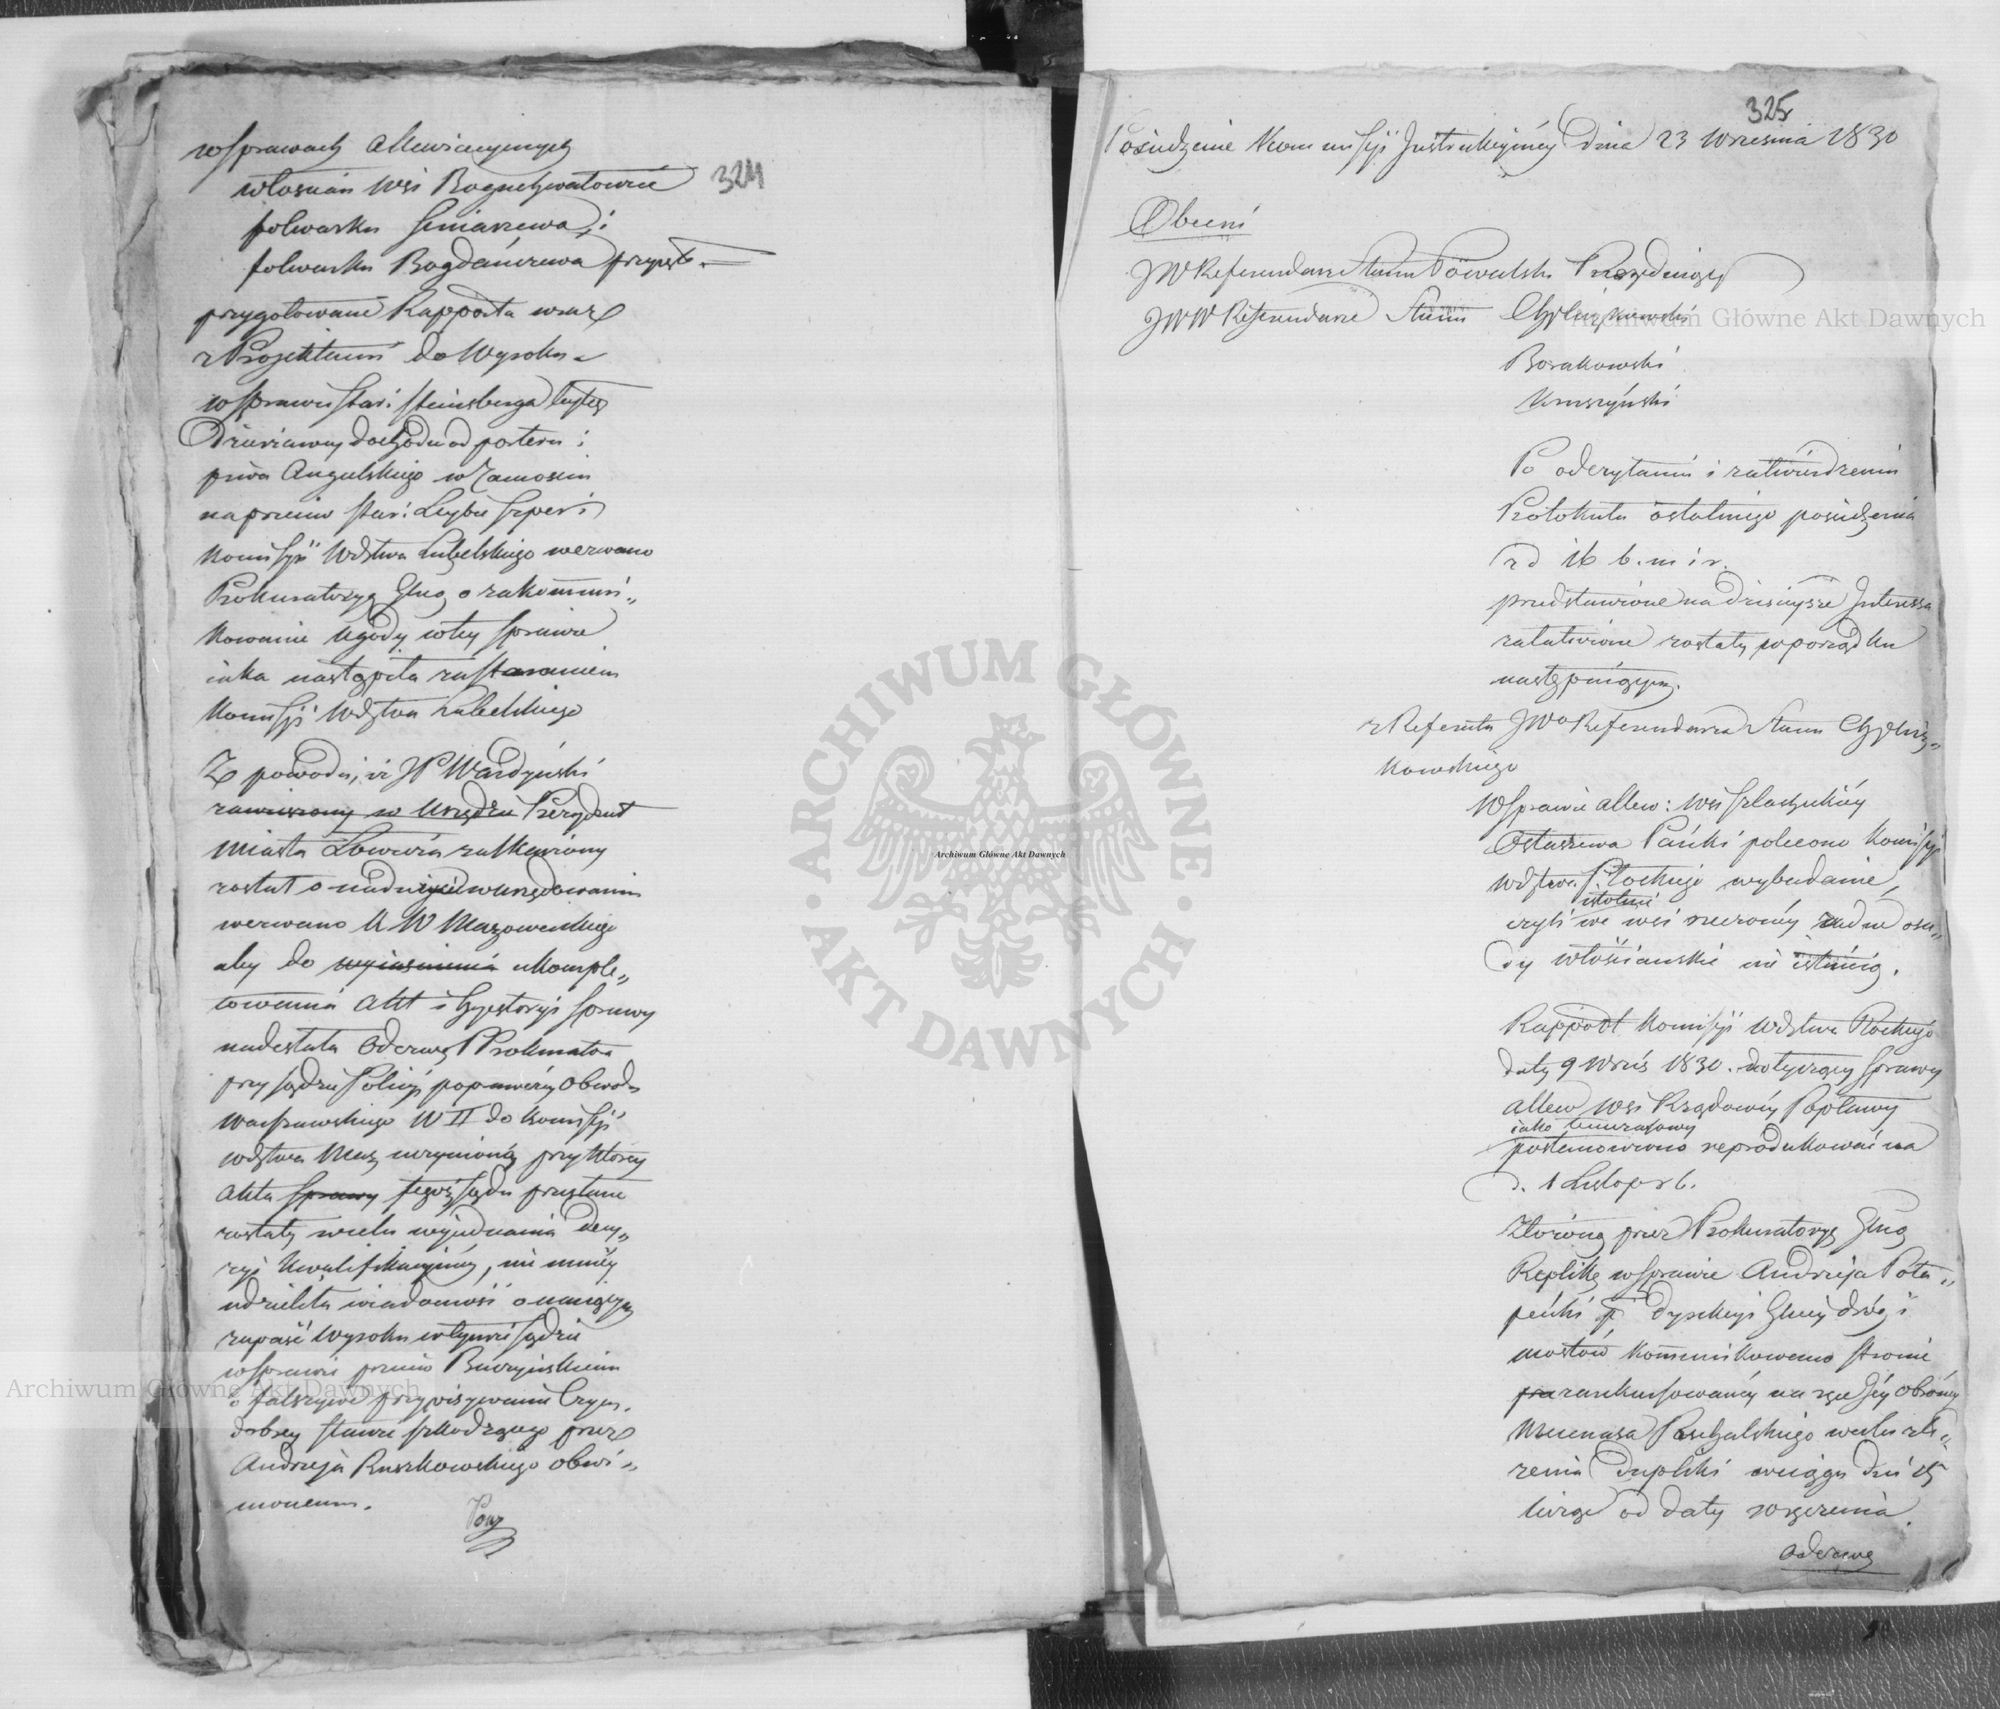 324
w sprawach allewiacyjnych
włościan wsi Boguchwałowic
folwarku Seniaszewa, i
folwarku Bogdańczewa przyjęto
przygotowane Rapporta wraz
z Projektami do Wysoku
w sprawie star: Steinsberga tyczą
Dzierżawy dochodu od porteru i
piwa Angielskiego w Zamościu
naprzeciw star: Leybie Szper i
Kommissyi Wdztwa Lubelskiego wezwano
Prokuratoryą Glną o zakommuni„
kowanie ugody w tey sprawie
iaka nastąpiła za staraniem
Kommissyi Wdztwa Lubelskiego
Z powodu, iż JP Wardyński
zawieszony w Urzędzie Prezydent
miasta Łowicza zaskarżony
został o nadużycia w urzędowaniu
wezwano K W Mazowieckiego
aby do wyiaśnienia ukomple„
towania Akt i hystoryi sprawy
nadesłała Odezwę Prokuratora
przy Sądzie Policyi poprawczéy Obwodu
Warszawskiego W II do Kommissyi
Wdztwa Maz uczynioną przy którey
Akta sprawy tegoż sądu przesłane
zostały w celu wyjednania decy„
zyi kwalifikacyjnéy, nie mniéy
udzieliła wiadomość o maiącym
zapaść Wyroku w tymże sądzie
w sprawie przeciw Buczyńskiem
o fałszywe przypisywanie Czyn.
dobrey sławie szkodzącego przez
Andrzeja Ruszkowskiego obwi„
nionemu.
325
Posiedzenie Kommissyi Instrukcyjnéy dnia 23 Września 1830
Obecni
JW Referendarz Stanu Powalski Prezydujący
JWW Referendarze Stanu
Borakowski
Kruszyński
Po odczytaniu i zatwierdzeniu
Protokułu ostatniego posiedzenia
z d 16 b. m i r.
przedstawione na dzisieysze Interessa
załatwione zostały w porządku
następuiącym.
z Referatu JWo Referendarza Stanu Chylicz„
kowskiego
W sprawie allew: wsi szlacheckiéy
Ostaszewa Pańki polecono Kommissyi
Wdztwa Płockiego wybadanie,
istotnie
czyli we wsi rzeczonéy żadne osa„
dy włościańskie nie istnieią.
Rapport Kommissyi Wdztwa Płockiego
daty 9 Wrześ 1830. dotyczący sprawy
allew wsi Rządowéy Popławy
iako
postanowiono reprodukować na
d. 1 Listopa b.
Złożoną przez Prokuratoryą Glną
Replikę w sprawie Andrzeja Pota„
peńki Dyrekcyi Glnéy dróg i
mostów kommunikowano stronie
zaskarżonéy na ręce Jéy obrońcy
Mecenasa Paschalskiego w celu zło„
żenia Dupliki w ciągu dni 15
licząc od daty wręczenia.
Odezwę
Archiwum Główne Akt Dawnych
Archiwum Główne Akt Dawnych
Archiwum Główne Akt Dawnych
ARCHIWUM GŁÓWNE
AKT DAWNYCH